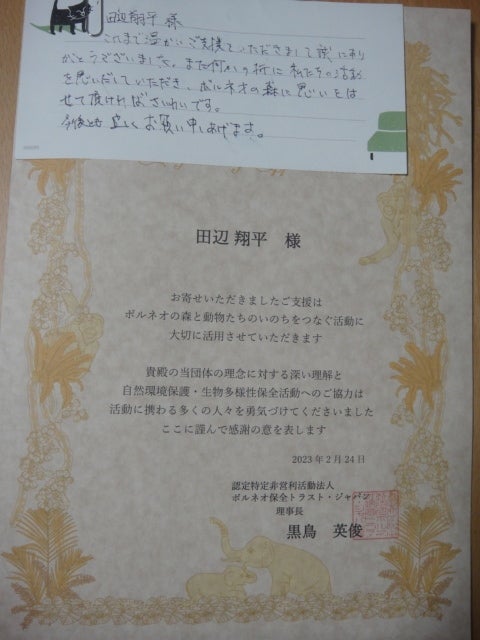 田辺翔平 様
これまで温かいご支援をいただきまして誠にあり
がとうございました。また何かの折に私たちの活動
を思いだしていただき、ボルネオの森に思いをは
せて頂ければさいわいです。
今後とも宜しくお願い申しあげます。
田辺 翔平 様
お寄せいただきましたご支援は
ボルネオの森と動物たちのいのちをつなぐ活動に
大切に活用させていただきます
貴殿の当団体の理念に対する深い理解と
自然環境保護・生物多様性保全活動へのご協力は
活動に携わる多くの人々を勇気づけてくださいました
ここに謹んで感謝の意を表します
2023年2月24日
認定特定非営利活動法人
ボルネオ保全トラスト・ジャパン
理事長
黒鳥 英俊